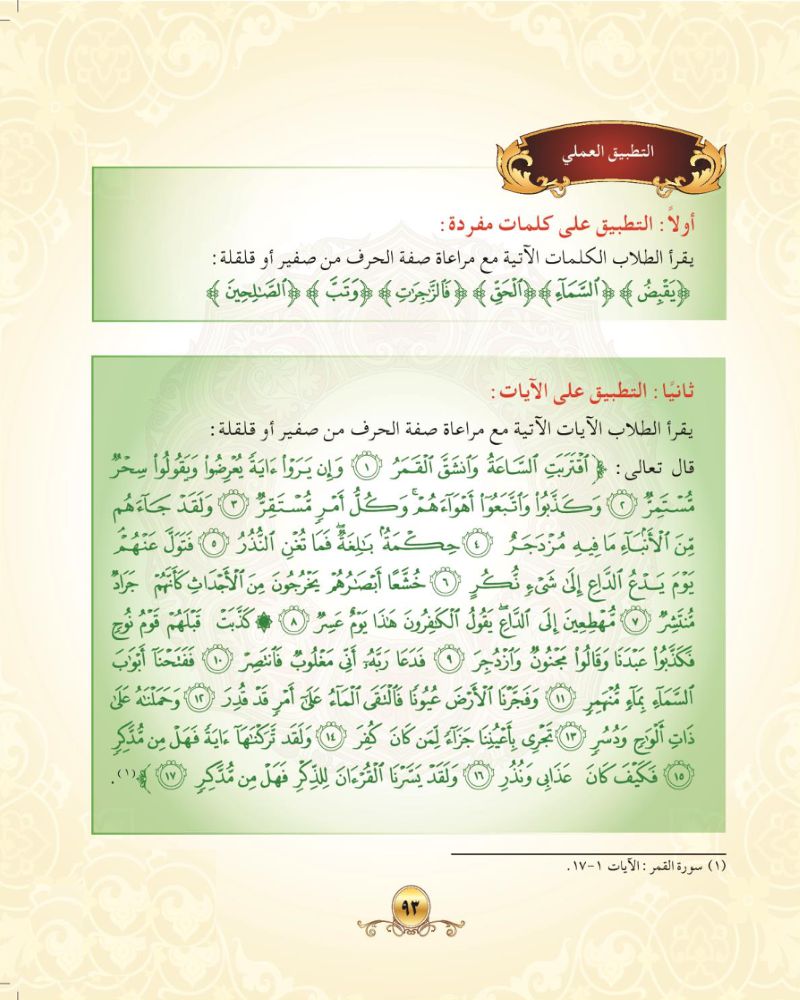 التطبيق العملي
أولاً: التطبيق على كلمات مفردة:
يقرأ الطلاب الكلمات الآتية مع مراعاة صفة الحرف من صفير أو قلقلة:
﴿يَقْبِضُ﴾ ﴿ٱلسَّمَآءِ﴾ ﴿ٱلْحَقِّ﴾ ﴿فَٱلزَّٰجِرَٰتِ﴾ ﴿وَتَبَّ﴾ ﴿ٱلصَّٰلِحِينَ﴾
ثانيًا: التطبيق على الآيات:
يقرأ الطلاب الآيات الآتية مع مراعاة صفة الحرف من صفير أو قلقلة:
قال تعالى: ﴿ٱقْتَرَبَتِ ٱلسَّاعَةُ وَٱنشَقَّ ٱلْقَمَرُ ١ وَإِن يَرَوْا۟ ءَايَةً يُعْرِضُوا۟ وَيَقُولُوا۟ سِحْرٌ
مُّسْتَمِرٌّ ٢ وَكَذَّبُوا۟ وَٱتَّبَعُوٓا۟ أَهْوَآءَهُمْ ۚ وَكُلُّ أَمْرٍ مُّسْتَقِرٌّ ٣ وَلَقَدْ جَآءَهُم
مِّنَ ٱلْأَنۢبَآءِ مَا فِيهِ مُزْدَجَرٌ ٤ حِكْمَةٌۢ بَٰلِغَةٌ ۖ فَمَا تُغْنِ ٱلنُّذُرُ ٥ فَتَوَلَّ عَنْهُمْ
يَوْمَ يَدْعُ ٱلدَّاعِ إِلَىٰ شَىْءٍ نُّكُرٍ ٦ خُشَّعًا أَبْصَٰرُهُمْ يَخْرُجُونَ مِنَ ٱلْأَجْدَاثِ كَأَنَّهُمْ جَرَادٌ
مُّنتَشِرٌ ٧ مُّهْطِعِينَ إِلَى ٱلدَّاعِ ۖ يَقُولُ ٱلْكَٰفِرُونَ هَٰذَا يَوْمٌ عَسِرٌ ٨ ۞ كَذَّبَتْ قَبْلَهُمْ قَوْمُ نُوحٍ
فَكَذَّبُوا۟ عَبْدَنَا وَقَالُوا۟ مَجْنُونٌ وَٱزْدُجِرَ ٩ فَدَعَا رَبَّهُۥٓ أَنِّى مَغْلُوبٌ فَٱنتَصِرْ ١٠ فَفَتَحْنَآ أَبْوَٰبَ
ٱلسَّمَآءِ بِمَآءٍ مُّنْهَمِرٍ ١١ وَفَجَّرْنَا ٱلْأَرْضَ عُيُونًا فَٱلْتَقَى ٱلْمَآءُ عَلَىٰٓ أَمْرٍ قَدْ قُدِرَ ١٢ وَحَمَلْنَٰهُ عَلَىٰ
ذَاتِ أَلْوَٰحٍ وَدُسُرٍ ١٣ تَجْرِى بِأَعْيُنِنَا جَزَآءً لِّمَن كَانَ كُفِرَ ١٤ وَلَقَد تَّرَكْنَٰهَآ ءَايَةً فَهَلْ مِن مُّدَّكِرٍ
١٥ فَكَيْفَ كَانَ عَذَابِى وَنُذُرِ ١٦ وَلَقَدْ يَسَّرْنَا ٱلْقُرْءَانَ لِلذِّكْرِ فَهَلْ مِن مُّدَّكِرٍ ١٧﴾(١).
(١) سورة القمر: الآيات ١-١٧.
٩٣